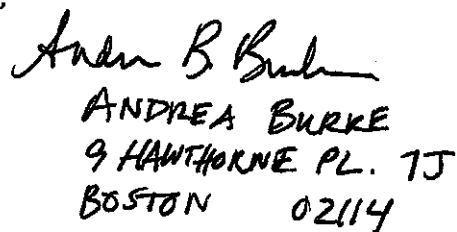 Andrea B Burke
ANDREA BURKE
9 HAWTHORNE PL. 7J
BOSTON 02114